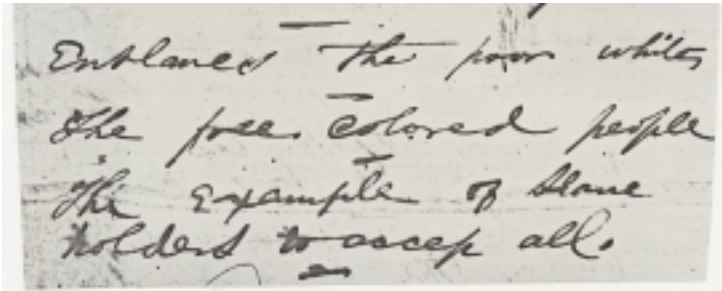 Enslaves the poor whites
The free colored people
The example of slave
holders to accep all.